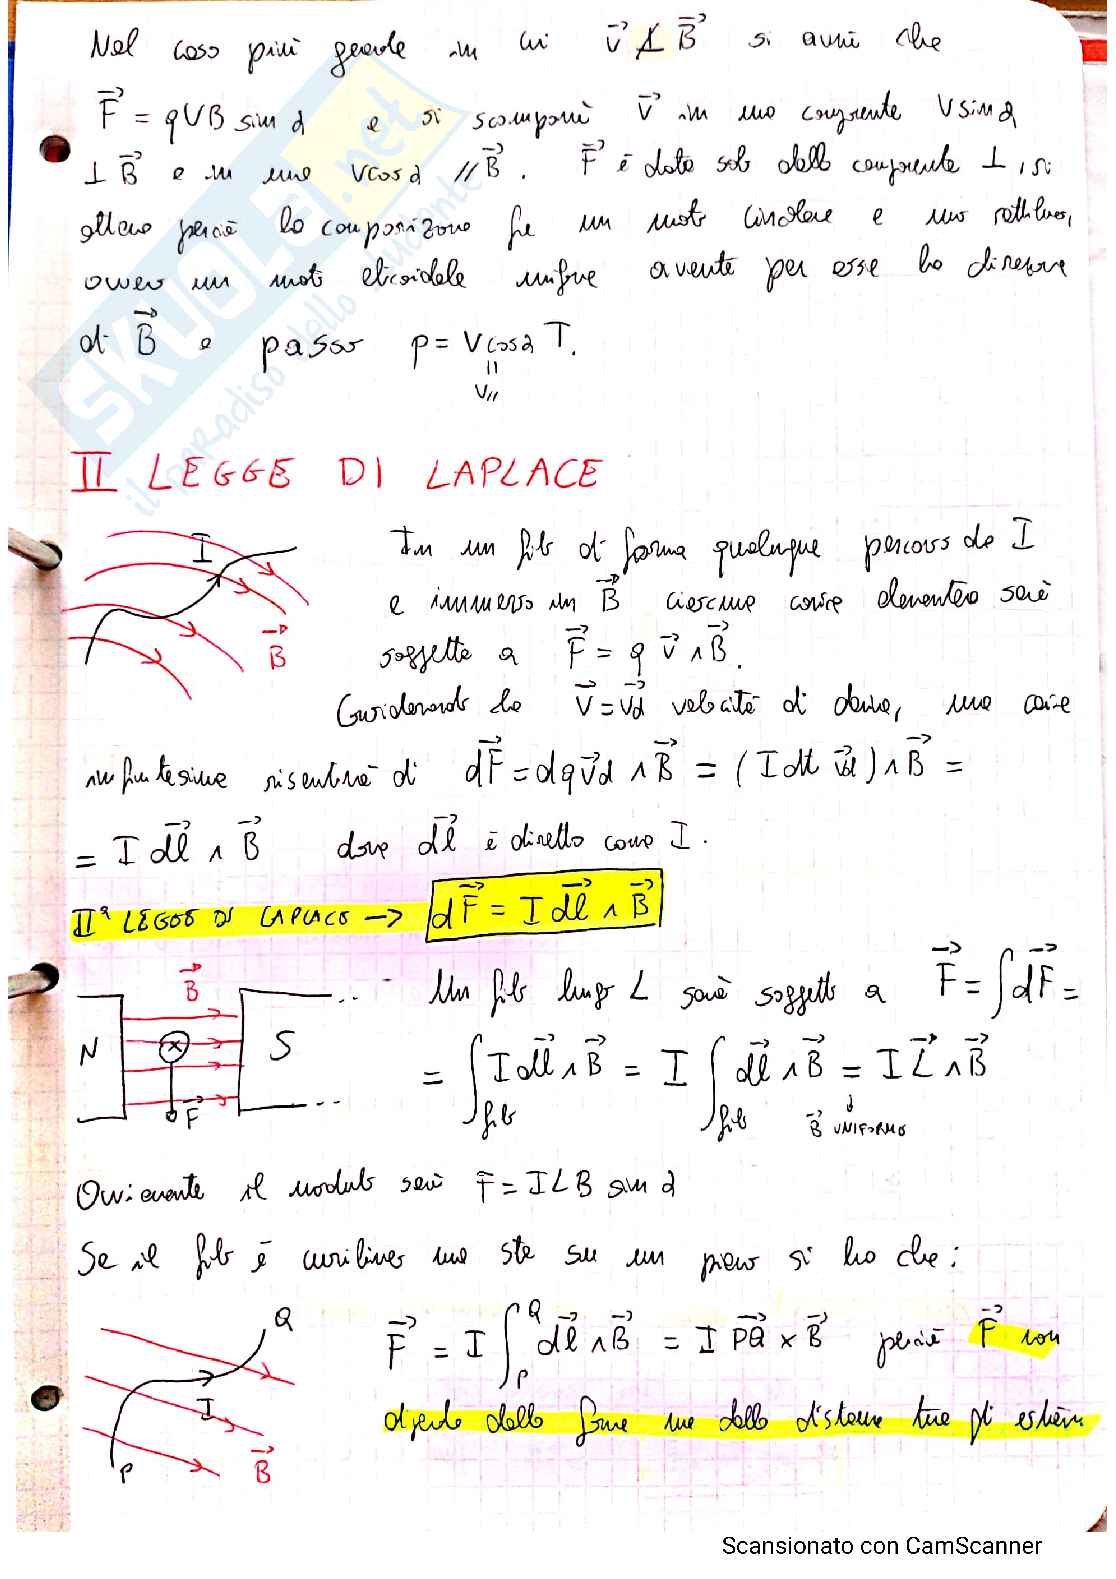 Nel caso più generale in cui v⃗ ⊥̸ B⃗ si avrà che
F⃗ = qVB sin α e si scompone v⃗ in una componente V sin α
⊥ B⃗ e in una V cos α // B⃗. F⃗ è data solo dalla componente ⊥, si
ottiene perciò la composizione fra un moto circolare e uno rettilineo,
ovvero un moto elicoidale uniforme avente per asse la direzione
di B⃗ e passo p = V cos α T.
=
V//
II LEGGE DI LAPLACE
I
B⃗
In un filo di forma qualunque percorso da I
e immerso in B⃗ ciascuna carica elementare sarà
soggetta a F⃗ = q v⃗ ∧ B⃗.
Considerando che v⃗ = v⃗d velocità di deriva, una carica
infinitesima risentirà di dF⃗ = dq v⃗d ∧ B⃗ = (I dt v⃗d) ∧ B⃗ =
= I dl⃗ ∧ B⃗ dove dl⃗ è diretto come I.
IIª LEGGE DI LAPLACE → dF⃗ = I dl⃗ ∧ B⃗
B⃗
N
S
F⃗
Un filo lungo L sarà soggetto a F⃗ = ∫ dF⃗ =
= ∫filo I dl⃗ ∧ B⃗ = I ∫filo dl⃗ ∧ B⃗ = I L⃗ ∧ B⃗
B⃗ UNIFORME
Ovviamente il modulo sarà F = I L B sin α
Se il filo è curvilineo ma sta su un piano si ha che:
Q
I
P
B⃗
F⃗ = I ∫P^Q dl⃗ ∧ B⃗ = I PQ⃗ × B⃗ perciò F⃗ non
dipende dalla forma ma dalla distanza tra gli estremi
SKUOLA.net
il paradiso dello studente
Scansionato con CamScanner